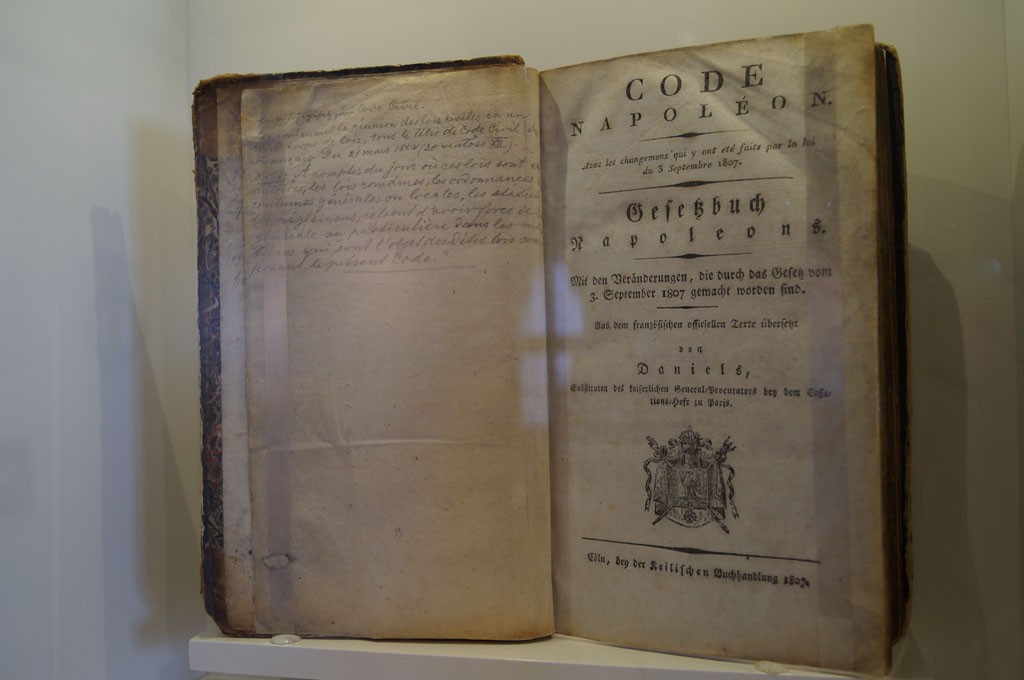 Code Civil.
la réunion des lois civiles en un
de lois, sous le titre de Code Civil
Français Du 21 mars 1804 (30 ventôse XII.)
compter du jour où ces lois sont
les lois romaines, les ordonnances
coutumes générales ou locales, les
règlemens, cessent d'avoir force de
générale ou particulière dans les ma
qui sont l'objet desdites lois com
posant le présent Code."
CODE
NAPOLÉON.
Avec les changemens qui y ont été faits par la loi
du 3 Septembre 1807.
Gesetzbuch
Napoleons.
Mit den Veränderungen, die durch das Gesetz vom
3. September 1807 gemacht worden sind.
Aus dem französischen officiellen Texte übersetzt
von
Daniels,
Substituten des kaiserlichen General-Procurators bey dem Cassa-
tions-Hofe zu Paris.
Cöln, bey der Keilischen Buchhandlung 1807.